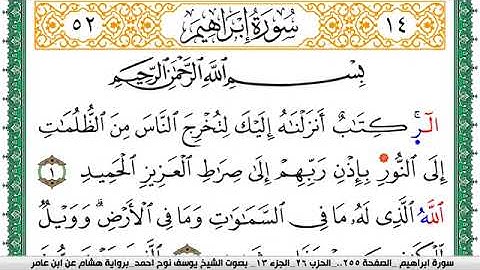 ١٤ سُورَةُ إِبْرَاهِيمَ ٥٢
بِسْمِ اللَّهِ الرَّحْمَٰنِ الرَّحِيمِ
الٓر۪ كِتَابٌ أَنزَلْنَاهُ إِلَيْكَ لِتُخْرِجَ النَّاسَ مِنَ الظُّلُمَاتِ
إِلَى النُّورِ بِإِذْنِ رَبِّهِمْ إِلَىٰ صِرَاطِ الْعَزِيزِ الْحَمِيدِ ١
اللَّهُ الَّذِي لَهُ مَا فِي السَّمَاوَاتِ وَمَا فِي الْأَرْضِ ۗ وَوَيْلٌ
سورة إبراهيم _الصفحة ٢٥٥_.. الحزب ٢٦_الجزء ١٣ _ بصوت الشيخ يوسف نوح احمد_برواية هشام عن ابن عامر